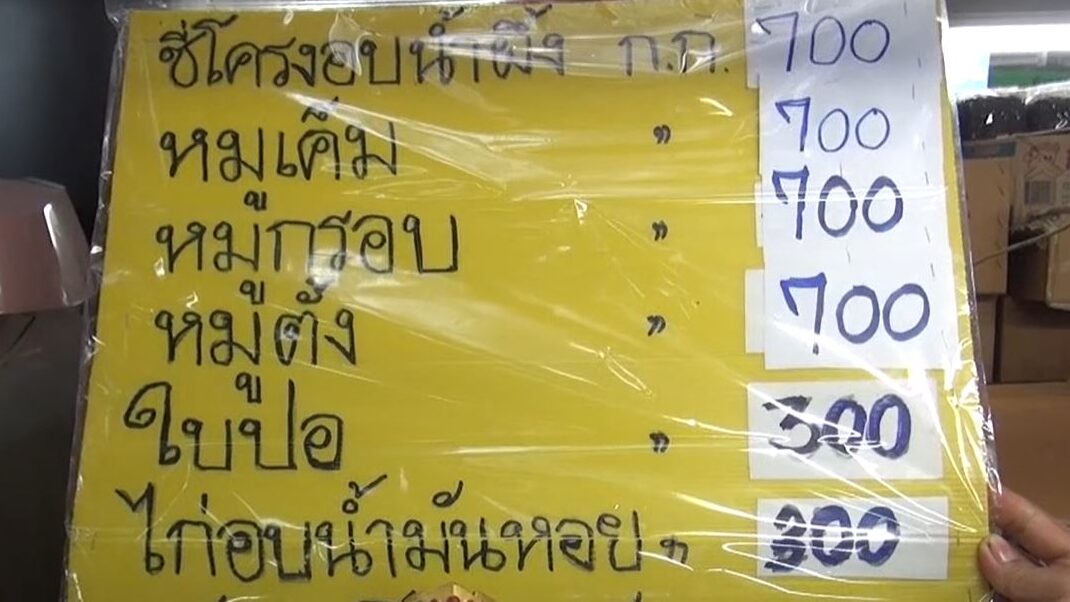 ซี่โครงอบน้ำผึ้ง ก.ก. 700
หมูเค็ม " 700
หมูกรอบ " 700
หมูตั้ง " 700
ใบปอ " 300
ไก่อบน้ำมันหอย " 300